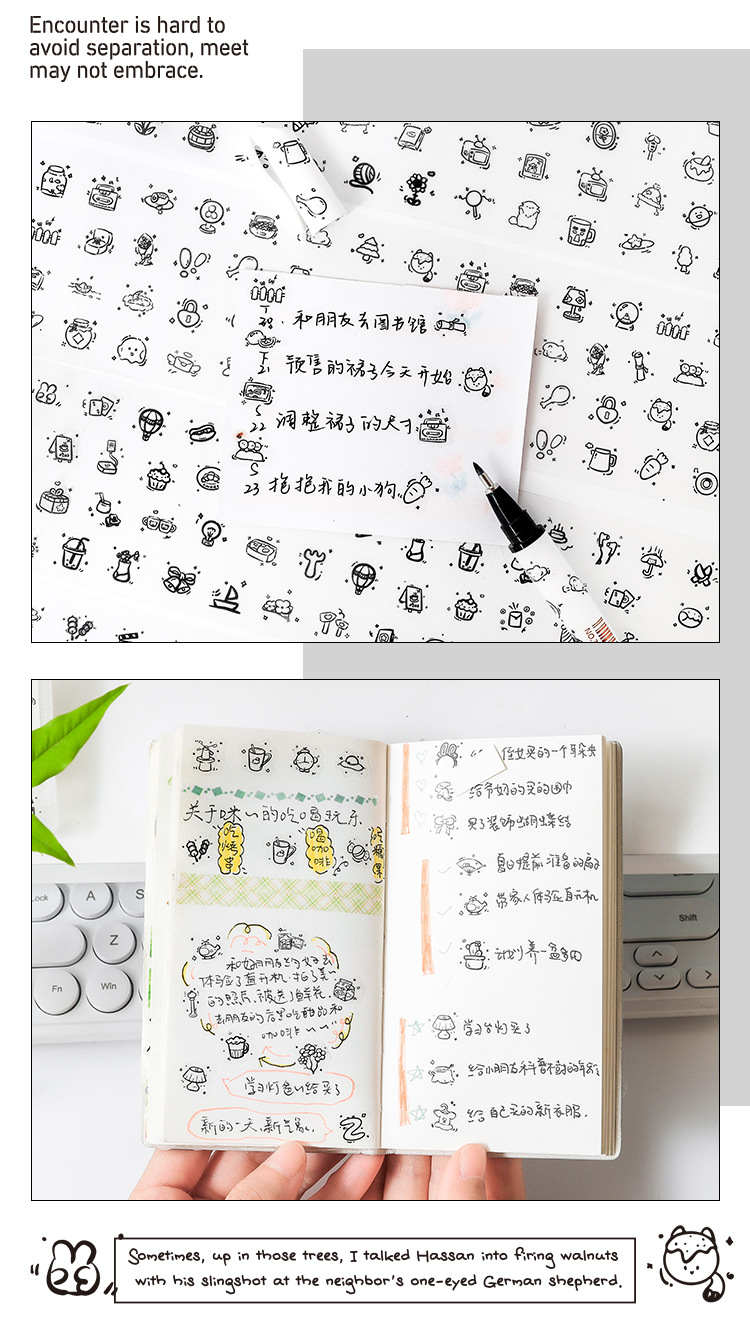 Encounter is hard to
avoid separation, meet
may not embrace.
28. 和朋友去图书馆
21 预售的裙子今天开始
22 调整裙子的尺寸
23 抱抱我的小狗
NO.
关于咪~的吃喝玩乐
吃烤串
喝咖啡
吃糖果
和好朋友
的照片,被送了鲜花,
去朋友的店里吃甜品和
咖啡~~
学习灯爸~给买了
新的一天,新气象。
侄女买的一个耳朵夹
给爷奶的买的围巾
买了装饰蝴蝶结
夏日提前准备的扇
带家人体验直升机
计划养一盆多肉
学习台灯买了
给小朋友科普
给自己买的新衣服.
Lock
A
S
Z
Fn
Win
Enter
Shift
Sometimes, up in those trees, I talked Hassan into firing walnuts
with his slingshot at the neighbor's one-eyed German shepherd.